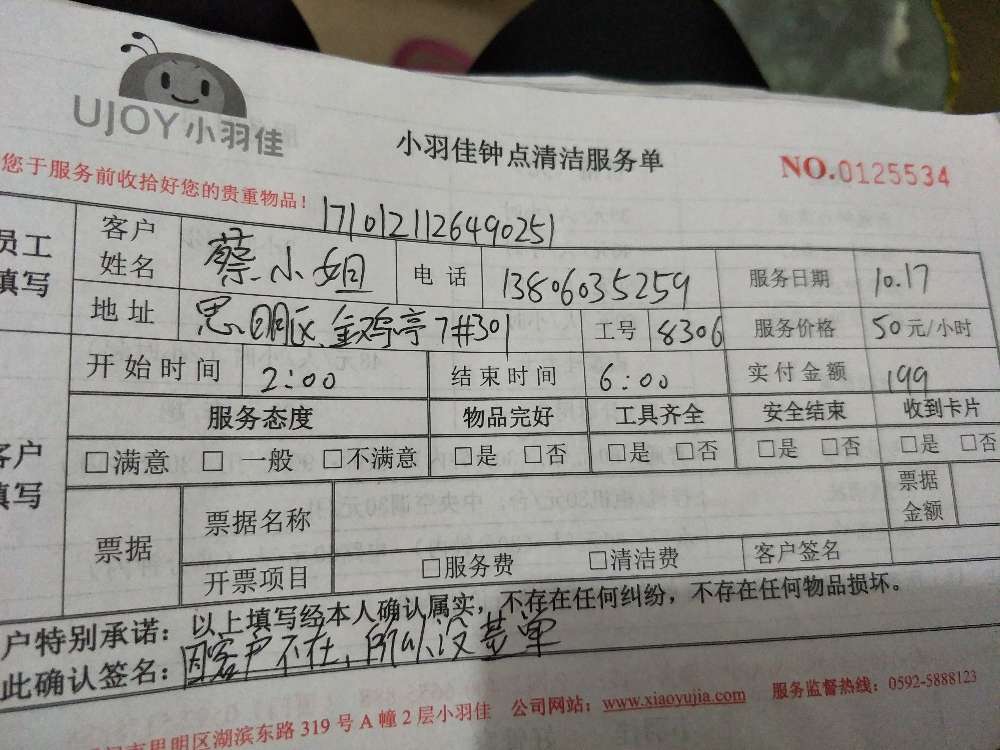 UJOY小羽佳
小羽佳钟点清洁服务单
NO.0125534
您于服务前收拾好您的贵重物品！
1710121126490251
员工填写
客户姓名 蔡小姐 电话 13806035259 服务日期 10.17
地址 思明区金鸡亭7#301 工号 8306 服务价格 50元/小时
开始时间 2:00 结束时间 6:00 实付金额 199
客户填写
服务态度 物品完好 工具齐全 安全结束 收到卡片
□满意 □一般 □不满意 □是 □否 □是 □否 □是 □否 □是 □否
票据 票据名称 票据金额
开票项目 □服务费 □清洁费 客户签名
户特别承诺：以上填写经本人确认属实，不存在任何纠纷，不存在任何物品损坏。
此确认签名：因客户不在，所以没签单
市思明区湖滨东路319号A幢2层小羽佳 公司网站：www.xiaoyujia.com 服务监督热线：0592-5888123